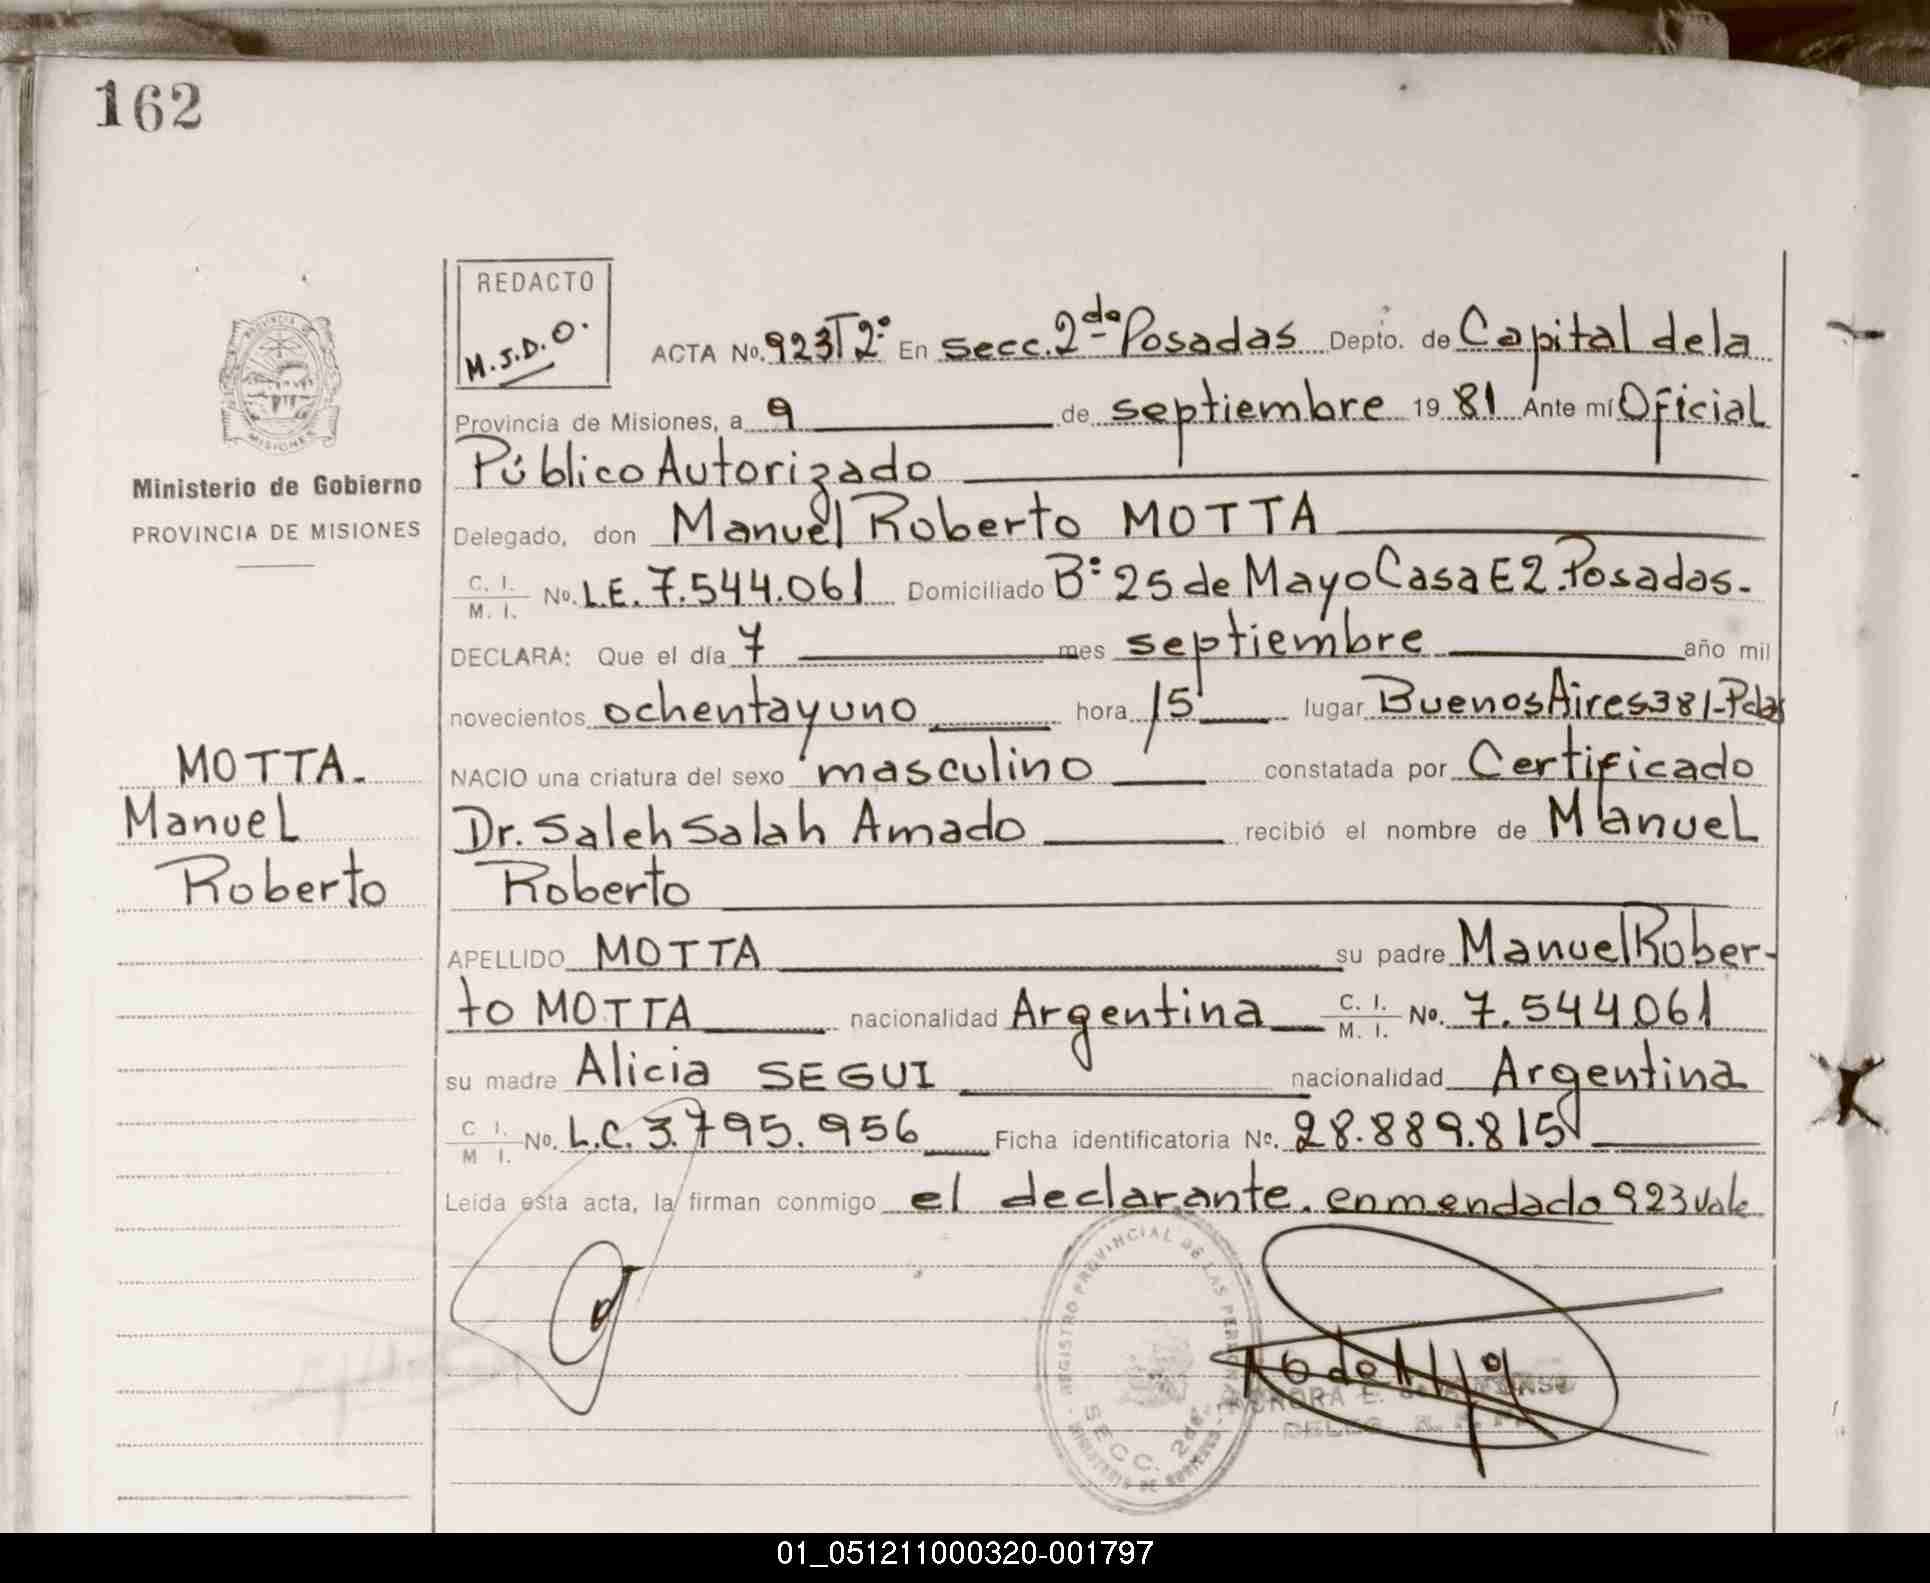 162
REDACTO
M.J.D.O.
ACTA No. 923 T2º En secc. 2da Posadas Depto. de Capital de la
Provincia de Misiones, a 9 de septiembre 19 81 Ante mí Oficial
Público Autorizado
Delegado, don Manuel Roberto MOTTA
C. I. / M. I. No. L.E. 7.544.061 Domiciliado Bº 25 de Mayo Casa E2. Posadas.-
DECLARA: Que el día 7 mes septiembre año mil
novecientos ochenta y uno hora 15 lugar Buenos Aires 381-Pdas
NACIO una criatura del sexo masculino constatada por Certificado
Dr. Saleh Salah Amado recibió el nombre de Manuel
Roberto
APELLIDO MOTTA su padre Manuel Rober-
to MOTTA nacionalidad Argentina C. I. / M. I. No. 7.544.061
su madre Alicia SEGUI nacionalidad Argentina
C. I. / M. I. No. L.C. 3.795.956 Ficha identificatoria No. 28.889.815
Leída esta acta, la firman conmigo el declarante. enmendado 923 vale
PROVINCIA DE
MISIONES
Ministerio de Gobierno
PROVINCIA DE MISIONES
MOTTA.
Manuel
Roberto
REGISTRO PROVINCIAL DE LAS PERSONAS
SECC. 2da.
MINISTERIO DE GOBIERNO
01_051211000320-001797